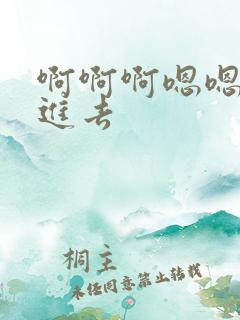 啊啊啊嗯嗯
進去
桐主
未经同意禁止转载